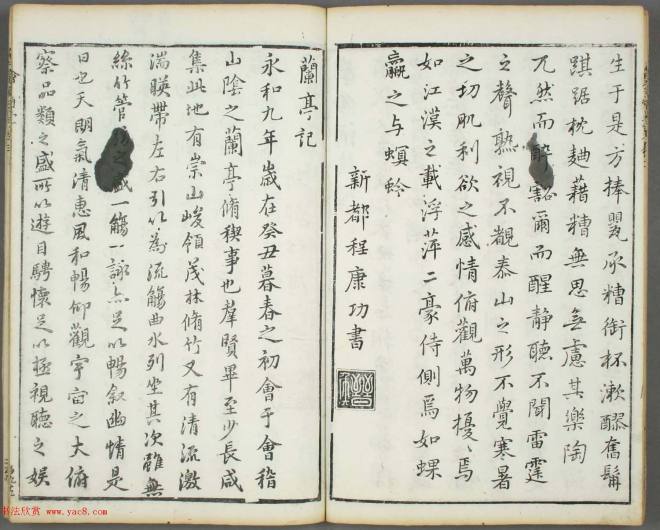 生于是方捧甖承糟銜杯漱醪奮髯
踑踞枕麯藉糟無思無慮其樂陶
兀然而醉豁爾而醒靜聽不聞雷霆
之聲熟視不覩泰山之形不覺寒暑
之切肌利欲之感情俯觀萬物擾〻焉
如江漢之載浮萍二豪侍側焉如蜾
蠃之与螟蛉
新都程康功書
蘭亭記
永和九年歲在癸丑暮春之初會于會稽
山陰之蘭亭脩稧事也羣賢畢至少長咸
集此地有崇山峻領茂林脩竹又有清流激
湍暎帶左右引以為流觴曲水列坐其次雖無
絲竹管之盛一觴一詠亦足以暢敘幽情是
日也天朗氣清惠風和暢仰觀宇宙之大俯
察品類之盛所以遊目騁懷足以極視聽之娛
书法欣赏 www.yac8.com